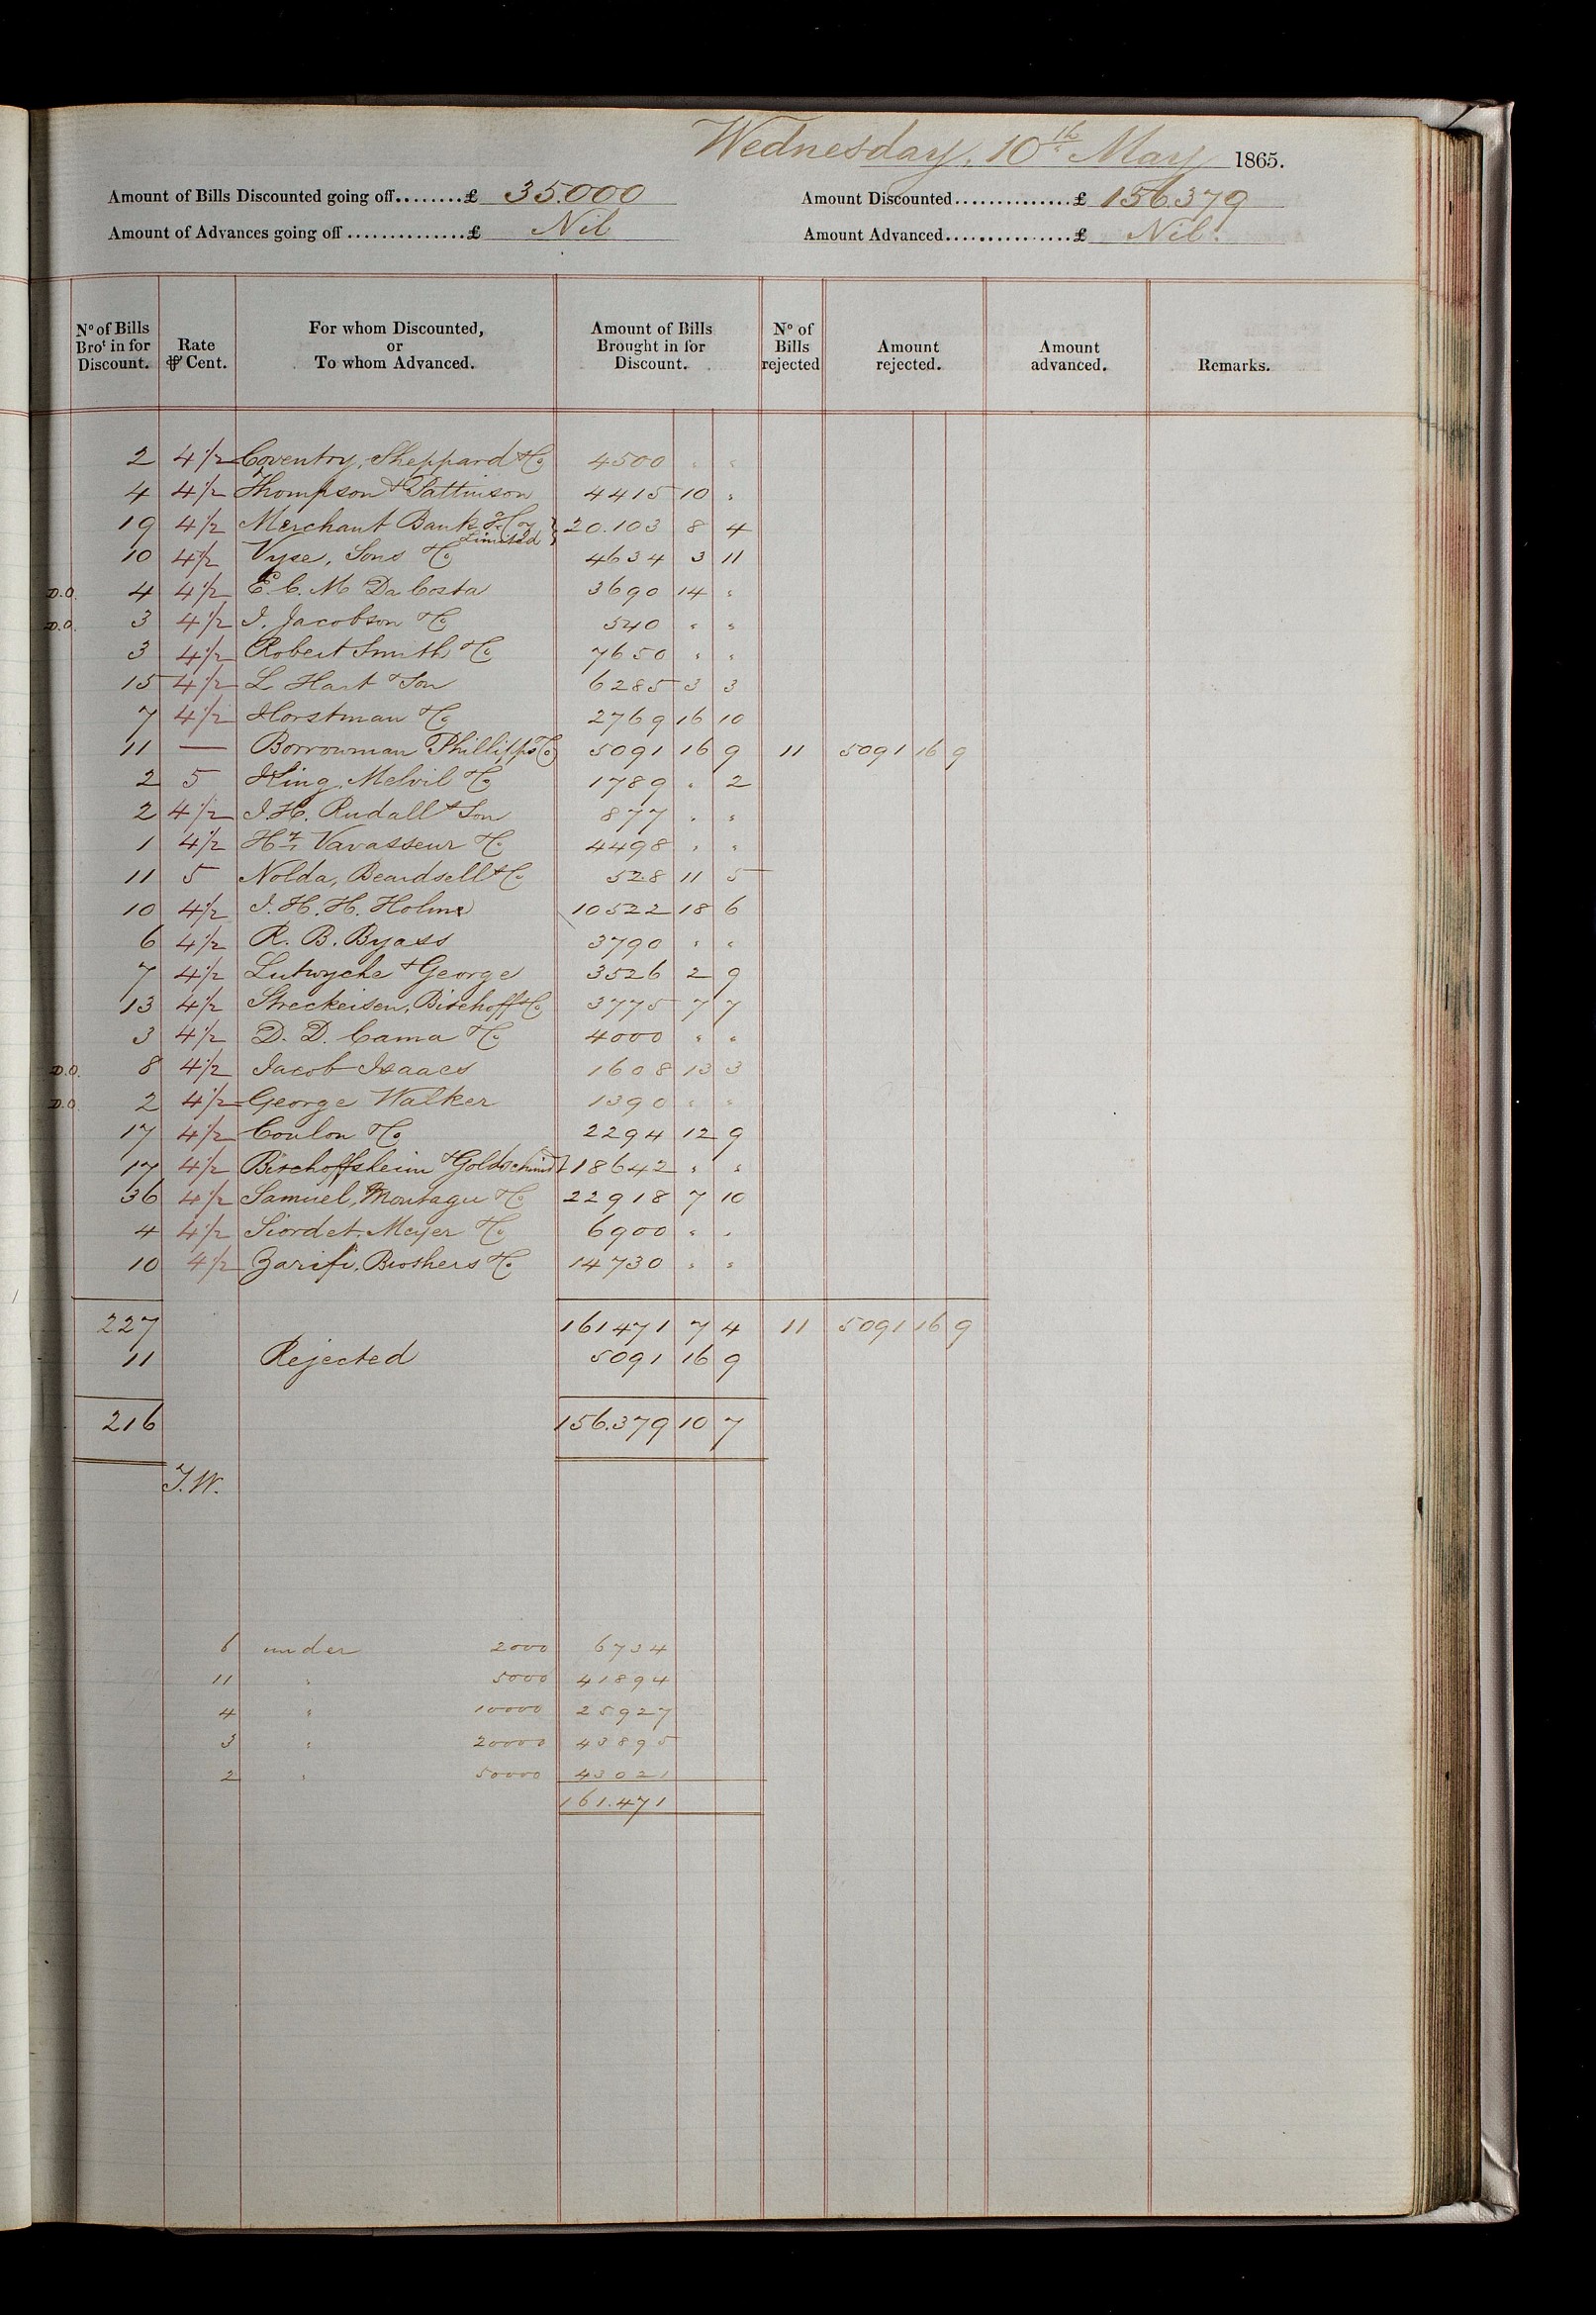 Wednesday, 10th May 1865.
Amount of Bills Discounted going off........£ 35.000 Amount Discounted..............£ 156.379
Amount of Advances going off..............£ Nil Amount Advanced................£ Nil.
No of Bills Brot in for Discount. Rate ⅌ Cent. For whom Discounted, or To whom Advanced. Amount of Bills Brought in for Discount. No of Bills rejected Amount rejected. Amount advanced. Remarks.
2 4½ Coventry, Sheppard & Co 4500 " "
4 4½ Thompson & Pattinson 4415 10 "
19 4½ Merchant Bank Limited } 20.103 8 4
10 4½ Vyse, Sons & Co 4634 3 11
D.O. 4 4½ E. C. M Da Costa 3690 14 "
D.O. 3 4½ I. Jacobson & Co 540 " "
3 4½ Robert Smith & Co 7650 " "
15 4½ L Hart & Son 6285 3 3
7 4½ Horstman & Co 2769 16 10
11 — Borrowman Phillipps & Co 5091 16 9 11 5091 16 9
2 5 King, Melvil & Co 1789 " 2
2 4½ J. H. Rudall & Son 877 " "
1 4½ Hy Vavasseur & Co 4498 " "
11 5 Nolda, Beardsell & Co 528 11 5
10 4½ J. H. H. Holme 10522 18 6
6 4½ R. B. Byass 3790 " "
7 4½ Lutwyche & George 3526 2 9
13 4½ Streckeisen, Bischoff & Co 3775 7 7
3 4½ D. D. Cama & Co 4000 " "
D.O. 8 4½ Jacob Isaacs 1608 13 3
D.O. 2 4½ George Walker 1390 " "
17 4½ Coulon & Co 2294 12 9
17 4½ Bischoffsheim & Goldschmidt 18642 " "
36 4½ Samuel, Montagu & Co 22918 7 10
4 4½ Siordet, Meyer & Co 6900 " "
10 4½ Zarifi, Brothers & Co 14730 " "
227 161471 7 4 11 5091 16 9
11 Rejected 5091 16 9
216 156.379 10 7
J.W.
6 under 2000 6734
11 " 5000 41894
4 " 10000 25927
3 " 20000 43895
2 " 50000 43021
161.471